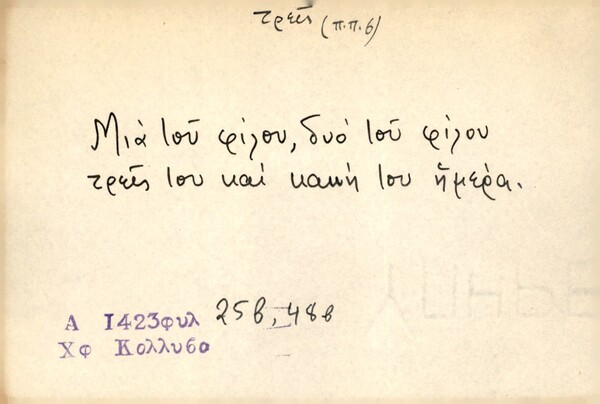 τρεῖς (π.π.6)
Μιὰ τοῦ φίλου, δυό τοῦ φίλου
τρεῖς του καί κακή του ἥμερα.
Α 1423φυλ 25β, 48β
Χφ Κολλυβο